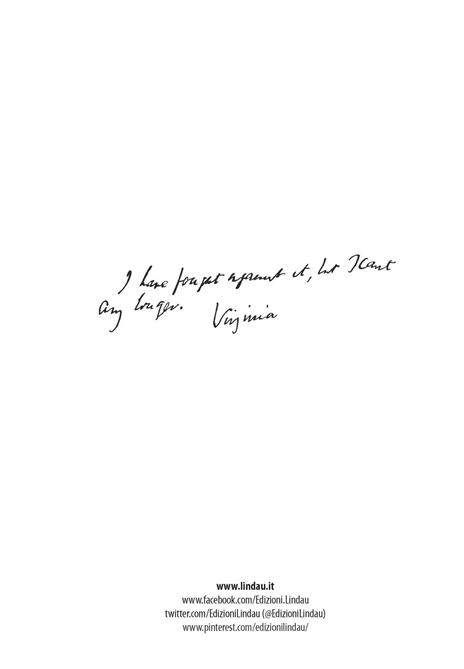 I have fought against it, but I cant
any longer. Virginia
www.lindau.it
www.facebook.com/Edizioni.Lindau
twitter.com/EdizioniLindau (@EdizioniLindau)
www.pinterest.com/edizionilindau/